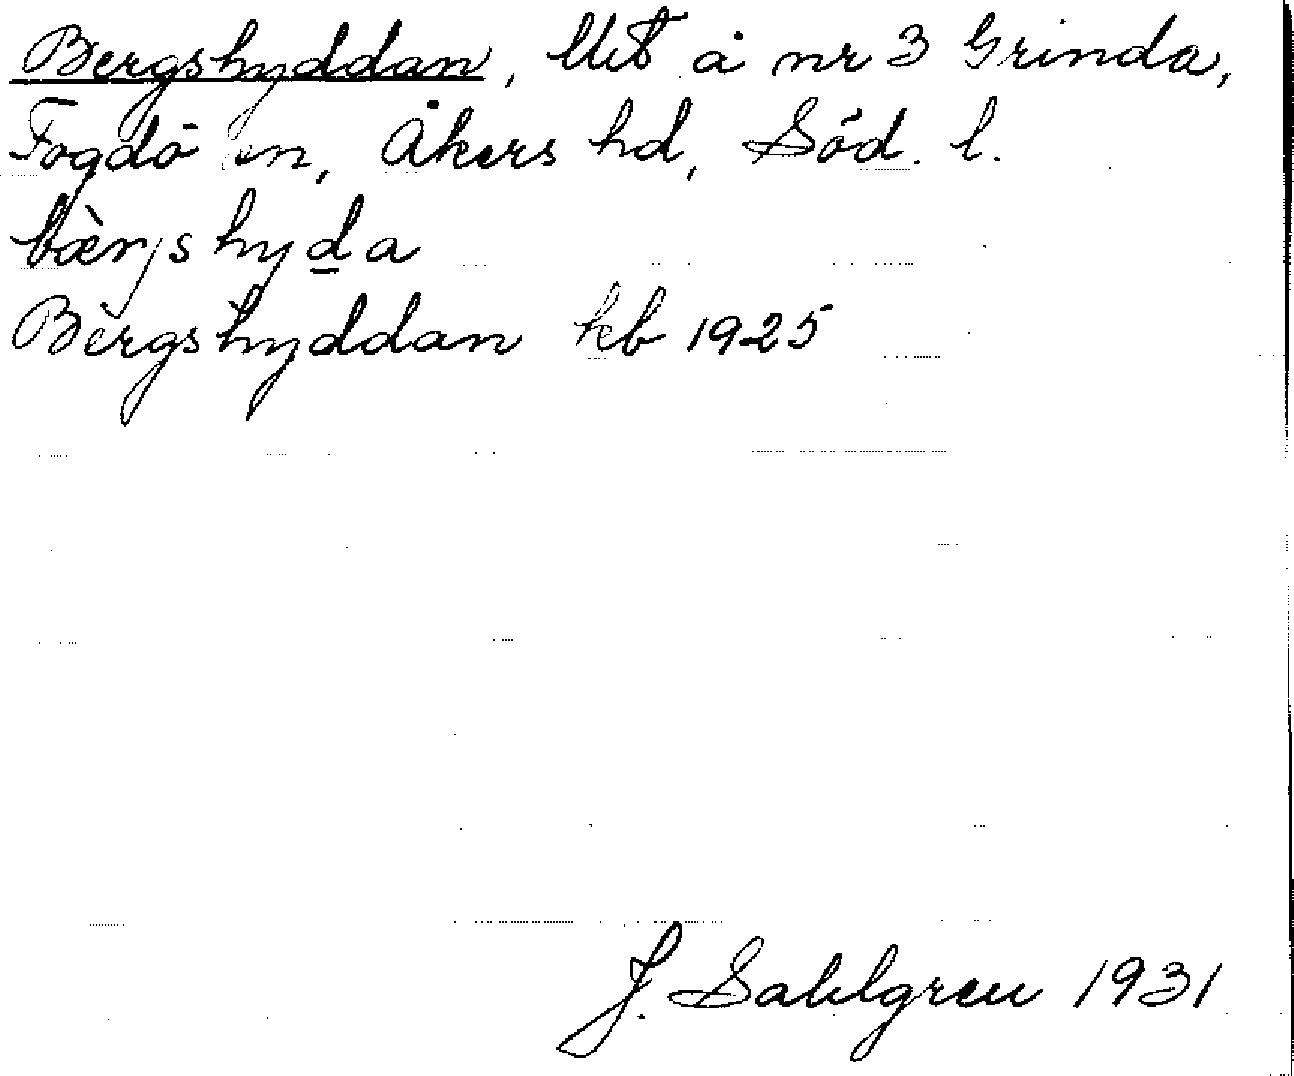 Bergshyddan, lht å nr 3 Grinda,
Fogdö sn, Åkers hd, Söd. l.
bærjshyda
Bergshyddan kb 1925
J. Sahlgren 1931